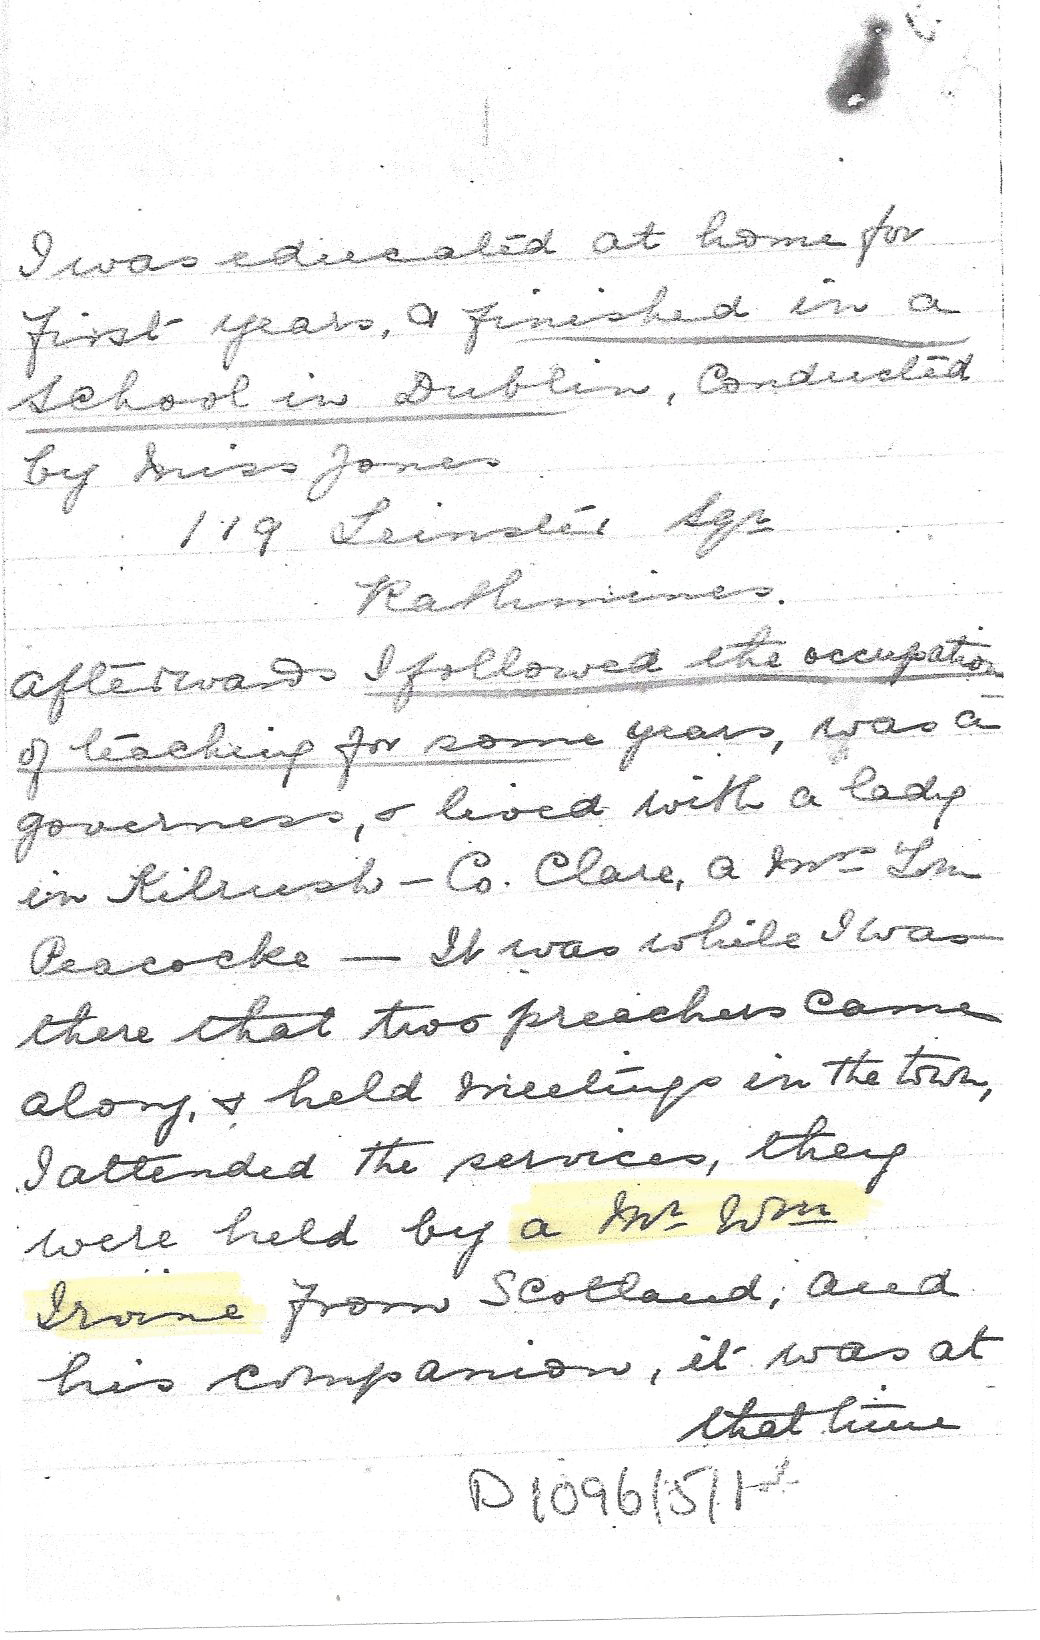 I was educated at home for
first years, & finished in a
school in Dublin, conducted
by Miss Jones
119 Leinster Sqr
Rathmines.
afterwards I followed the occupation
of teaching for some years, was a
governess, & lived with a lady
in Kilrush – Co. Clare, a Mrs
Peacocke — It was while I was
there that two preachers came
along, & held meetings in the town,
I attended the services, they
were held by a Mr Wm
Irvine from Scotland; and
his companion, it was at
that time
D1096/5/1